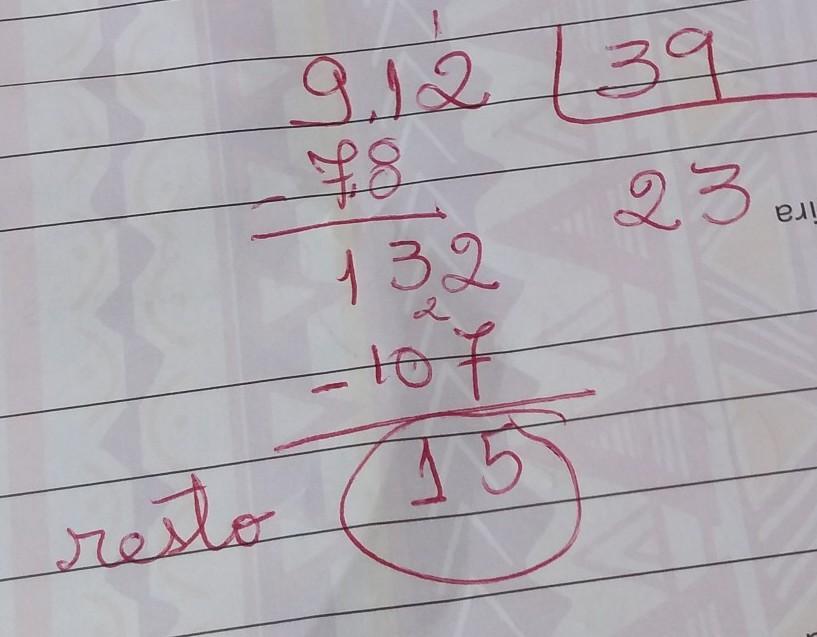 1
9.12 39
- 7.8
23
132
2
- 107
15
resto